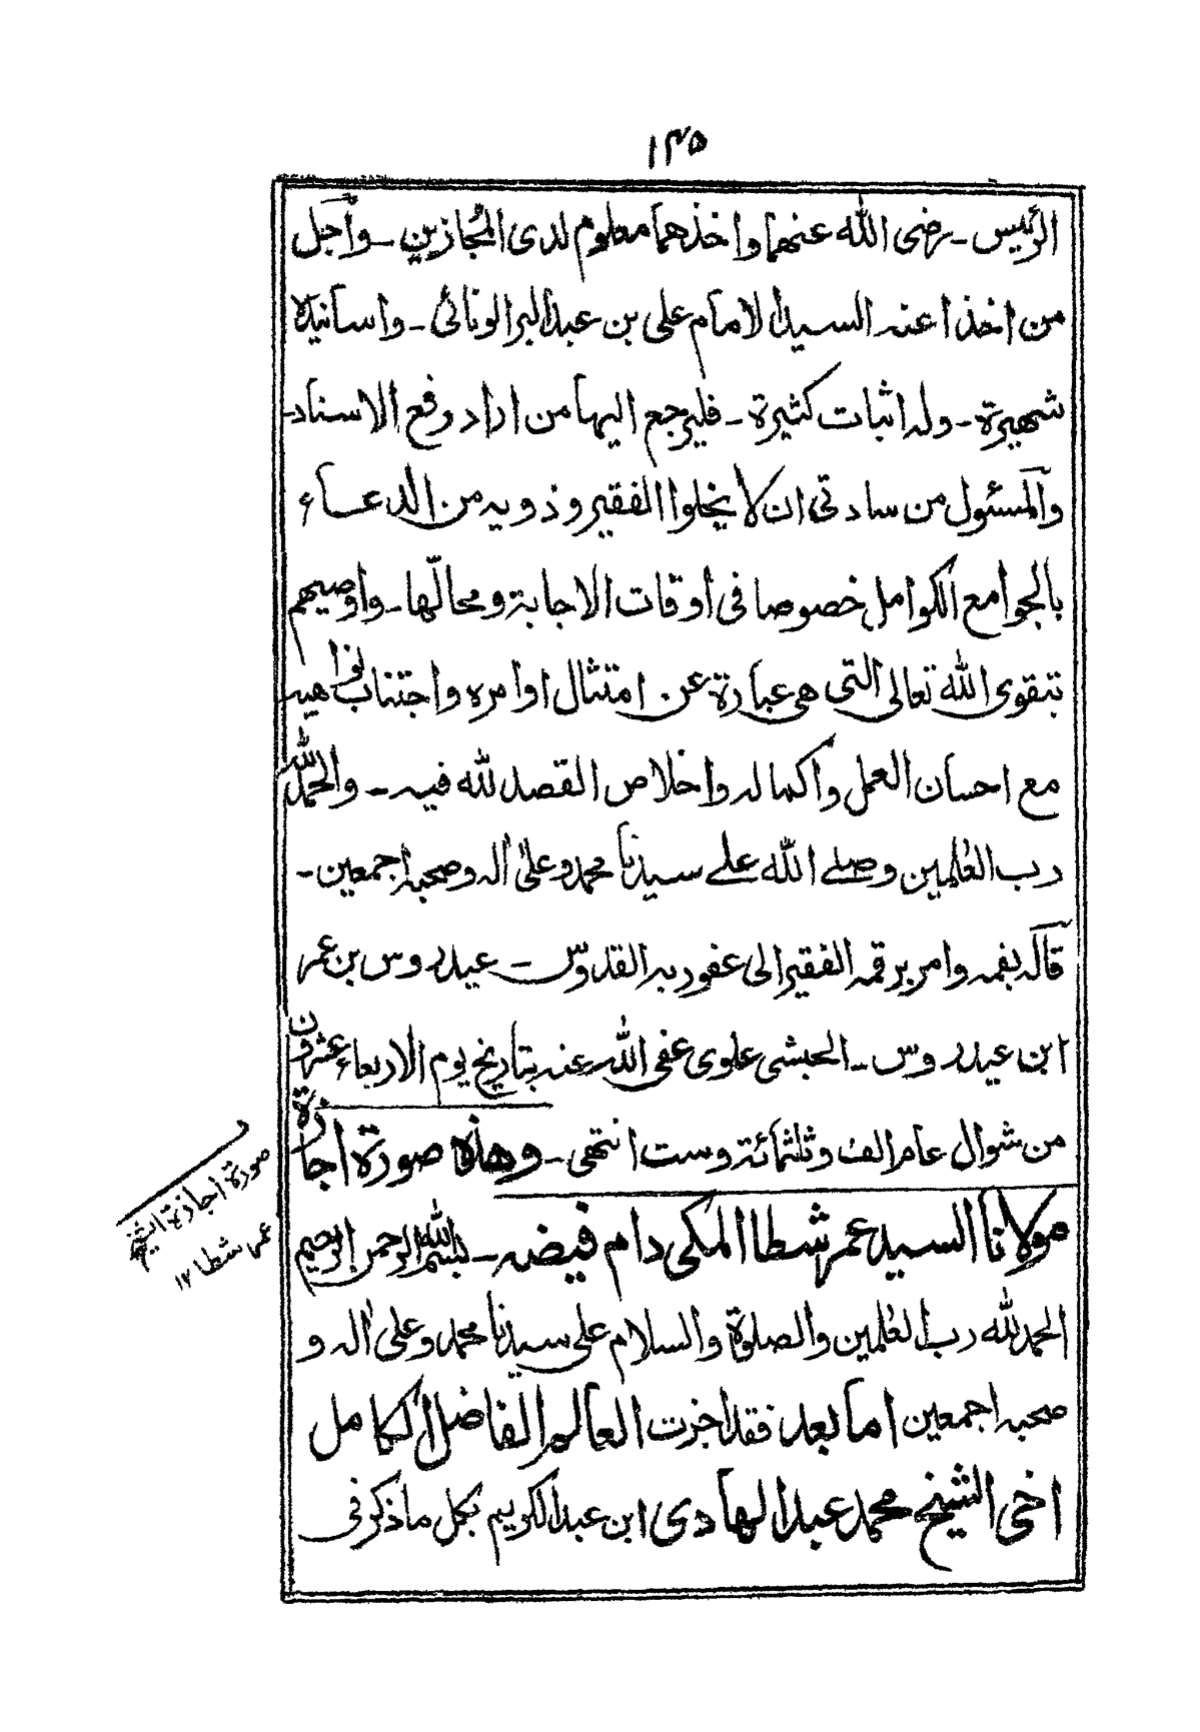 ١٣٥
الرئيس ـ رضى الله عنهما واخذهما معلوم لدى المُجازين ـ واَجل
من اخذا عنه السيد الامام على بن عبد البر الونائى ـ واسانيده
شهيرة ـ وله اثبات كثيرة ـ فليرجع اليها من اراد رفع الاسناد ـ
والمسئول من سادتى ان لا يخلوا الفقير وذويه من الدعاء
بالجوامع الكوامل خصوصا فى أوقات الاجابة ومحالّها ـ واوصيهم
بتقوى الله تعالى التى هى عبارة عن امتثال اوامره واجتناب نواهيه
مع احسان العمل واكماله واخلاص القصد لله فيه ـ والحمد لله
رب العٰلمين وصلے الله علے سيدنا محمد وعلىٰ اٰله وصحبه اجمعين ـ
قاله بفمه وامر برقمه الفقير الى عفو ربه القدّوس ـ عيدروس بن عمر
ابن عيدروس ـ الحبشى علوى عفى الله عنه بتاريخ يوم الاربعاء عشرون
من شوال عام الف وثلثمائة وست انتهى ـ وهذه صورة اجازة
مولانا السيد عمر شطا المكى دام فيضه ـ بسم الله الرحمن الرحيم
الحمد لله رب العٰلمين والصلوة والسلام على سيدنا محمد وعلىٰ اٰله و
صحبه اجمعين اما بعد فقد اجزت العالم الفاضل الكامل
اخى الشيخ محمد عبد الهادى ابن عبد الكريم بكل ما ذكر فى
صورة اجازة الشيخ
عمر شطا ١٢